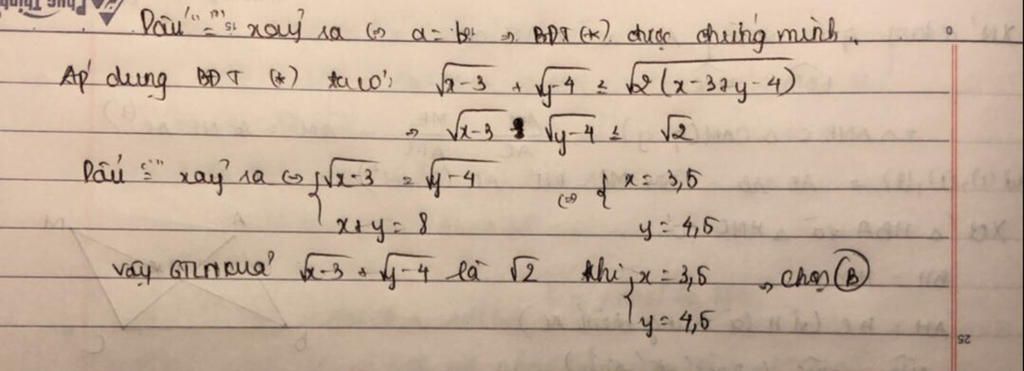 Dấu "=" xảy ra ⇔ a = b ⇒ BĐT (*) được chứng minh.
Áp dụng BĐT (*) ta có: √(x-3) + √(y-4) ≤ √(2(x-3+y-4))
⇒ √(x-3) + √(y-4) ≤ √2
Dấu "=" xảy ra ⇔ { √(x-3) = √(y-4) ⇔ { x = 3,5
x+y = 8 y = 4,5
Vậy GTLN của √(x-3) + √(y-4) là √2 khi { x = 3,5 ⇒ Chọn B
y = 4,5
25